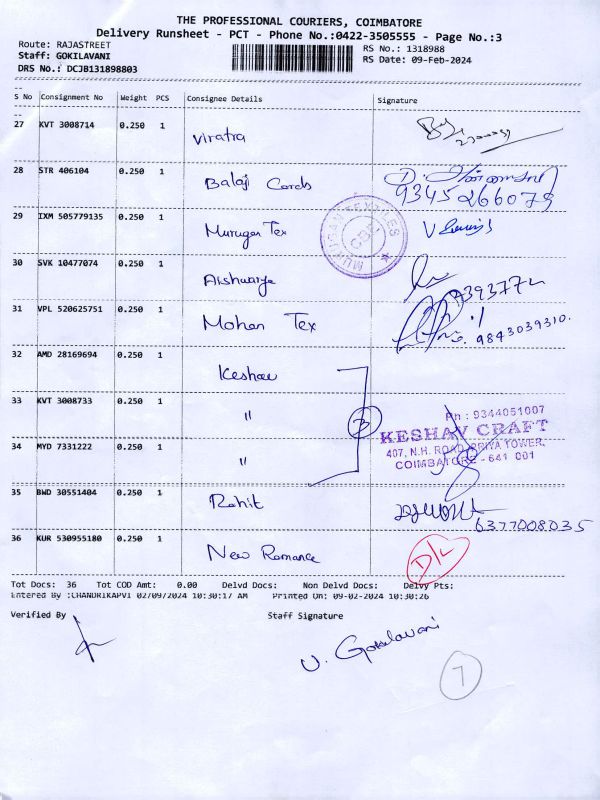 THE PROFESSIONAL COURIERS, COIMBATORE
Delivery Runsheet - PCT - Phone No.:0422-3505555 - Page No.:3
Route: RAJASTREET
RS No.: 1318988
Staff: GOKILAVANI
RS Date: 09-Feb-2024
DRS No.: DCJB131898803
S No Consignment No Weight PCS Consignee Details Signature
27 KVT 3008714 0.250 1 Viratra
28 STR 406104 0.250 1 Balaji Cards 9345266079
29 IXM 505779135 0.250 1 Murugan Tex
MURUGAN TEXTILES CBE
30 SVK 10477074 0.250 1 Aishwarya
31 VPL 520625751 0.250 1 Mohan Tex 9843039310.
32 AMD 28169694 0.250 1 Keshav
33 KVT 3008733 0.250 1 "
3
Ph : 9344051007
KESHAV CRAFT
407, N.H. ROAD, PRIYA TOWER,
COIMBATORE - 641 001
34 MYD 7331222 0.250 1 "
35 BWD 30551404 0.250 1 Rohit 6377008035
36 KUR 530955180 0.250 1 New Romance D/L
Tot Docs: 36 Tot COD Amt: 0.00 Delvd Docs: Non Delvd Docs: Delvy Pts:
Entered By :CHANDRIKAPV1 02/09/2024 10:30:17 AM Printed On: 09-02-2024 10:30:26
Verified By Staff Signature
V. Gokilavani
7